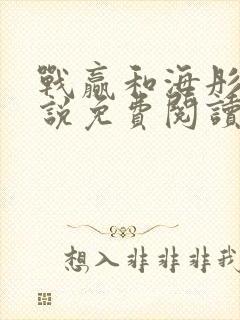 戰贏和海彤
說免費閱讀
想入非非非我